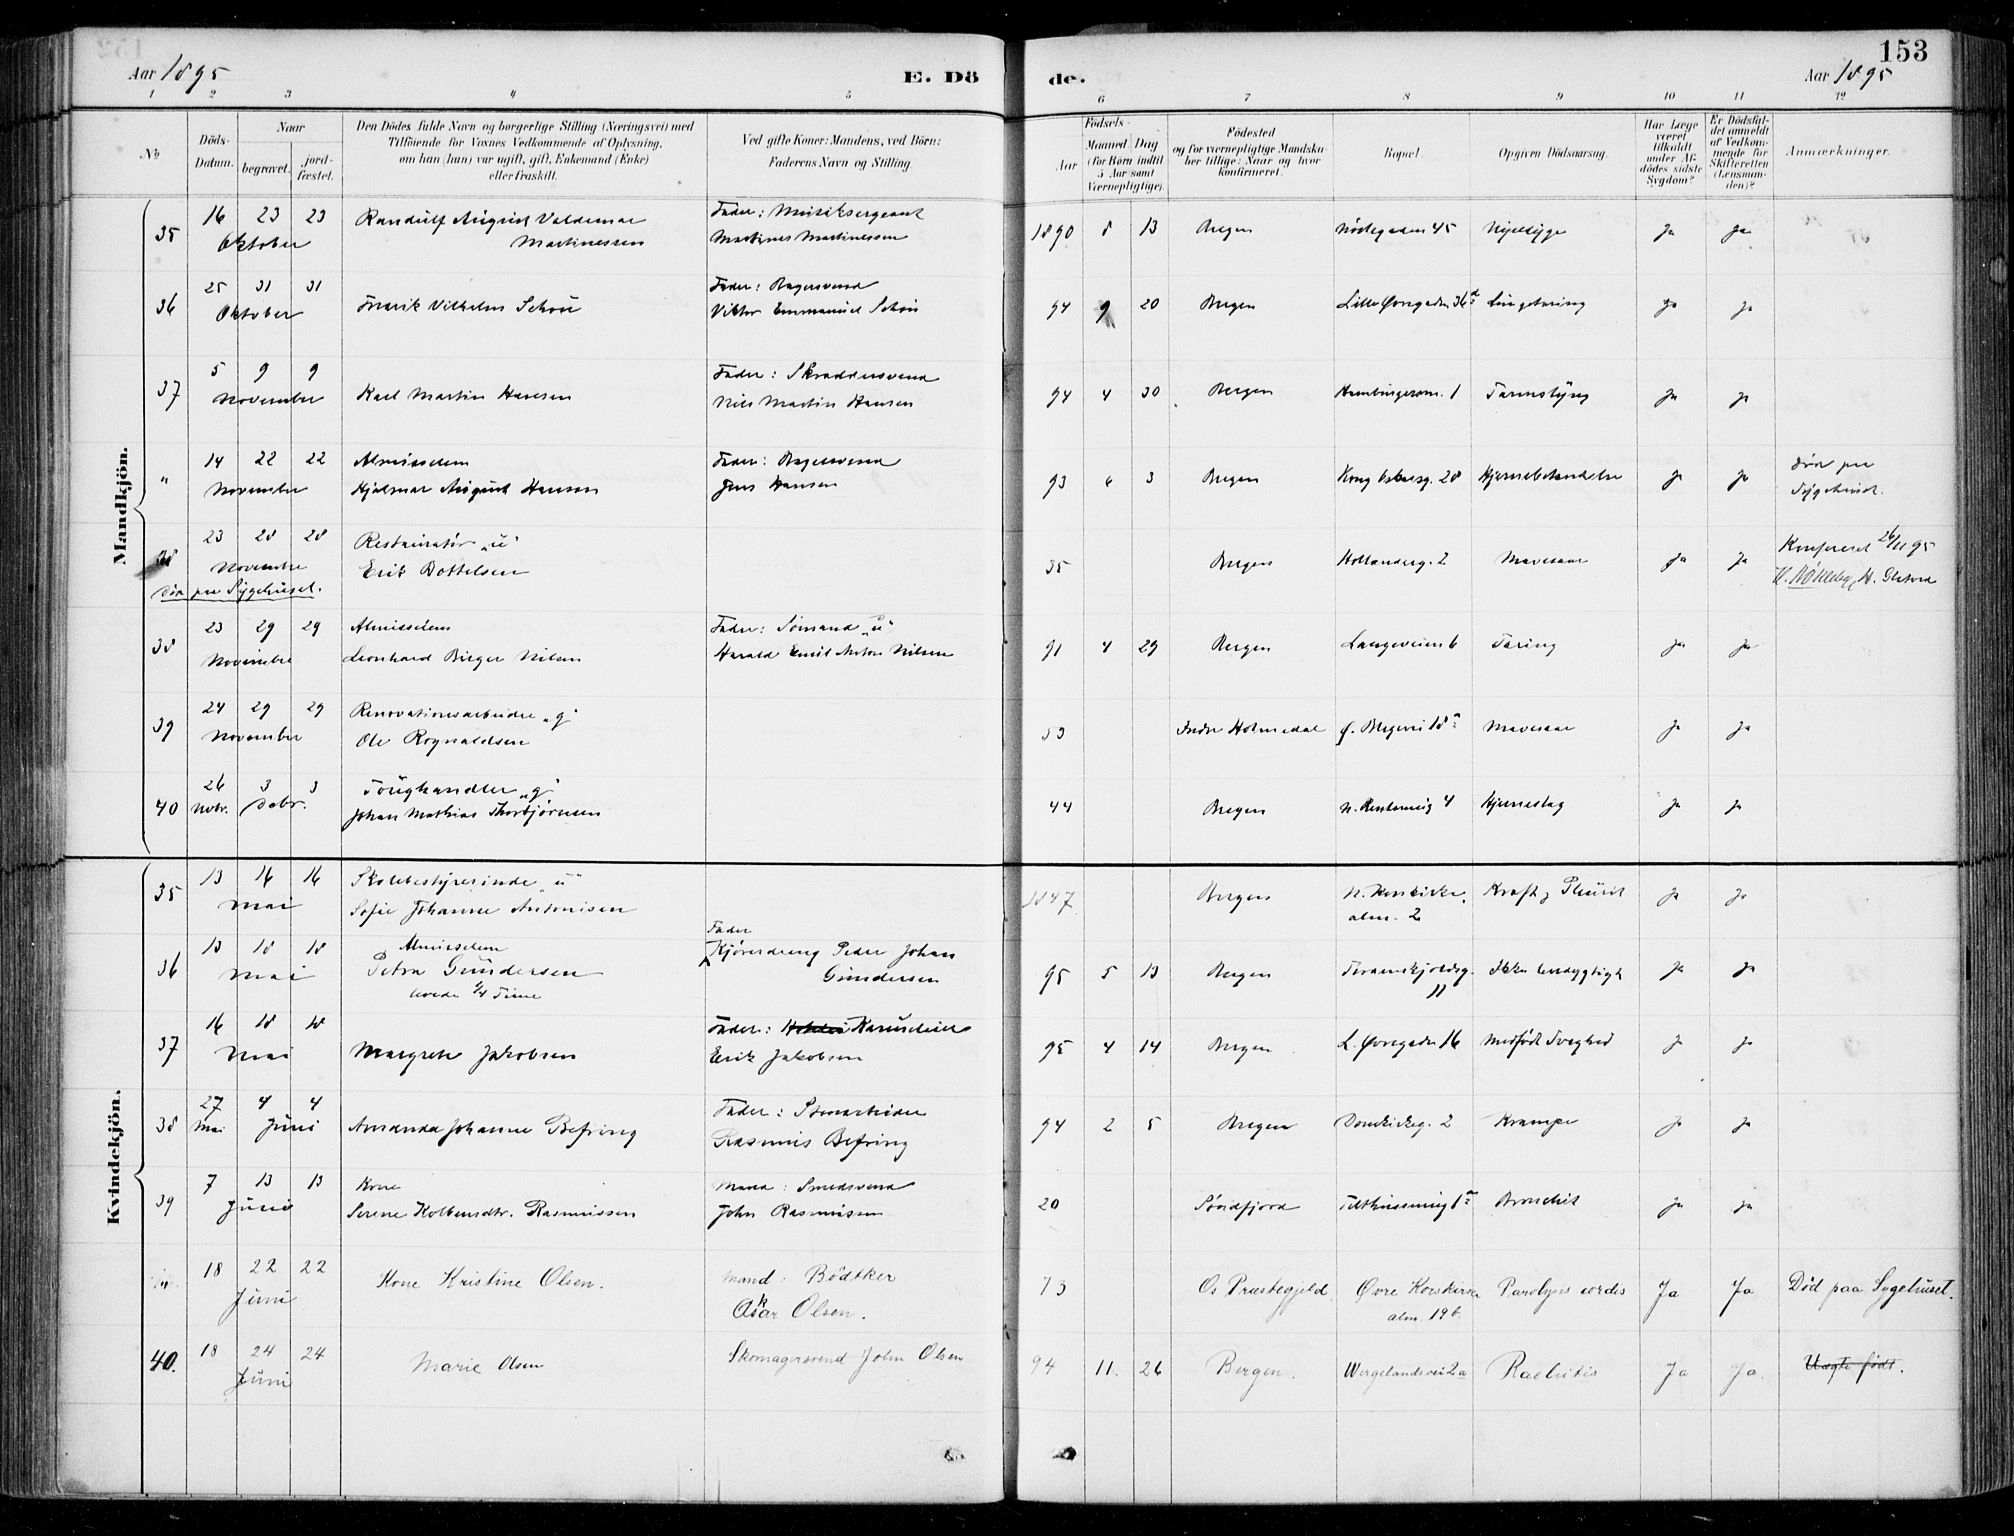 153
Aar 1895
E. Dö
de.
Aar 1895
1 2 3 4 5 6 7 8 9 10 11 12
No
Döds-Datum.
Naar
begravet.
jord-fæstet.
Den Dödes fulde Navn og borgerlige Stilling (Næringsvei) med
Tilföiende for Voxnes Vedkommende af Oplysning,
om han (hun) var ugift, gift, Enkemand (Enke)
eller fraskilt.
Ved gifte Koner: Mandens, ved Börn:
Faderens Navn og Stilling
Födsels-
Aar
Maaned
Dag
(for Börn indtil
5 Aar samt
Værnepligtige).
Födested
og for værnepligtige Mandska-
ber tillige: Naar og hvor
konfirmeret.
Bopæl.
Opgiven Dödsaarsag.
Har Læge
været
tilkaldt
under Af-
dödes sidste
Sygdom?
Er Dödsfal-
det anmeldt
af Vedkom-
mende for
Skifteretten
(Lensman-
den)?
Anmærkninger.
Mandkjön.
35 16 23 23 Oktober
Randulf August Valdemar
Martinessen
Fader: Musiksergeant
Martines Martinessen
1890 8 13 Bergen
45
Ja Ja
36 25 31 31 Oktober
Fredrik Vilhelm Schou
Fader: Bagersvend
Viktor Emmanuel Schou
94 9 20 Bergen Lille Øvregaden 36a Lungetæring Ja Ja
37 5 9 9 November
Karl Martin Hansen
Fader: Skræddersvend
Nils Martin Hansen
94 4 30 Bergen 1 Ja Ja
" 14 22 22 November
Almisselem
Hjalmar August Hansen
Fader: Bagersvend
Jens Hansen
93 6 3 Bergen Kong Oskarsg. 28 Hjernebetændelse Ja Ja
Död paa
Sygehuset.
38 23 28 28 November
Död paa Sygehuset.
Restauratör "u"
Erik Bottelsen
35 Bergen Hollenderg. 2 Mavesaar Ja Ja
Konfereret 26/11 95
38 23 29 29 November
Almisselem
Leonhard Birger Nilsen
Fader: Sömand "u"
Harald Emil Anton Nilsen
91 4 29 Bergen Langeveien 6 Tæring Ja Ja
39 24 29 29 November
Renovationsarbeider "g"
Ole Rognaldsen
53 Indre Holmedal Mavesaar Ja Ja
40 26 Novbr. 3 3 Debr.
Toughandler "g"
Johan Mathias Thorbjørnsen
44 Bergen 4 Hjerneslag Ja Ja
Kvindekjön.
35 13 16 16 Mai
Skolebestyrerinde "u"
Sofie Johanne Antonisen
1847 Bergen N. Korskirke
alm. 2
Kræft, Pleurit Ja Ja
36 13 18 18 Mai
Almisselem
Petra Gundersen
levede 1/4 Time
Fader
Kjøredreng Peder Johan
Gundersen
95 5 13 Bergen Tordenskjoldsg.
11
Ikke levedygtigt Ja Ja
37 16 18 18 Mai
Margrete Jakobsen
Fader:
Erik Jakobsen
95 4 14 Bergen L. Øvregaden 16 Medfödt Svaghed Ja Ja
38 27 Mai 4 4 Juni
Amanda Johanne Befring
Fader: Stenarbeider
Rasmus Befring
94 2 5 Bergen Domkirkeg. 2 Krampe Ja Ja
39 7 13 13 Juni
Kone
Serene Kolbensdtr. Rasmussen
Mand: Smedsvend
John Rasmussen
20 Söndfjord Bronchit Ja Ja
18 22 22 Juni
Kone Kristine Olsen.
Mand: Bödtker
Askar Olsen.
73 Os Præstegjeld Øvre Korskirke
alm. 19 b.
Paralysis cordis Ja Ja Död paa Sygehuset.
40. 18 24 24 Juni
Marie Olsen
Skomagersvend John Olsen
94 11. 26 Bergen. Wergelandsvei 2a Rachitis Ja Ja. Uægte födt.